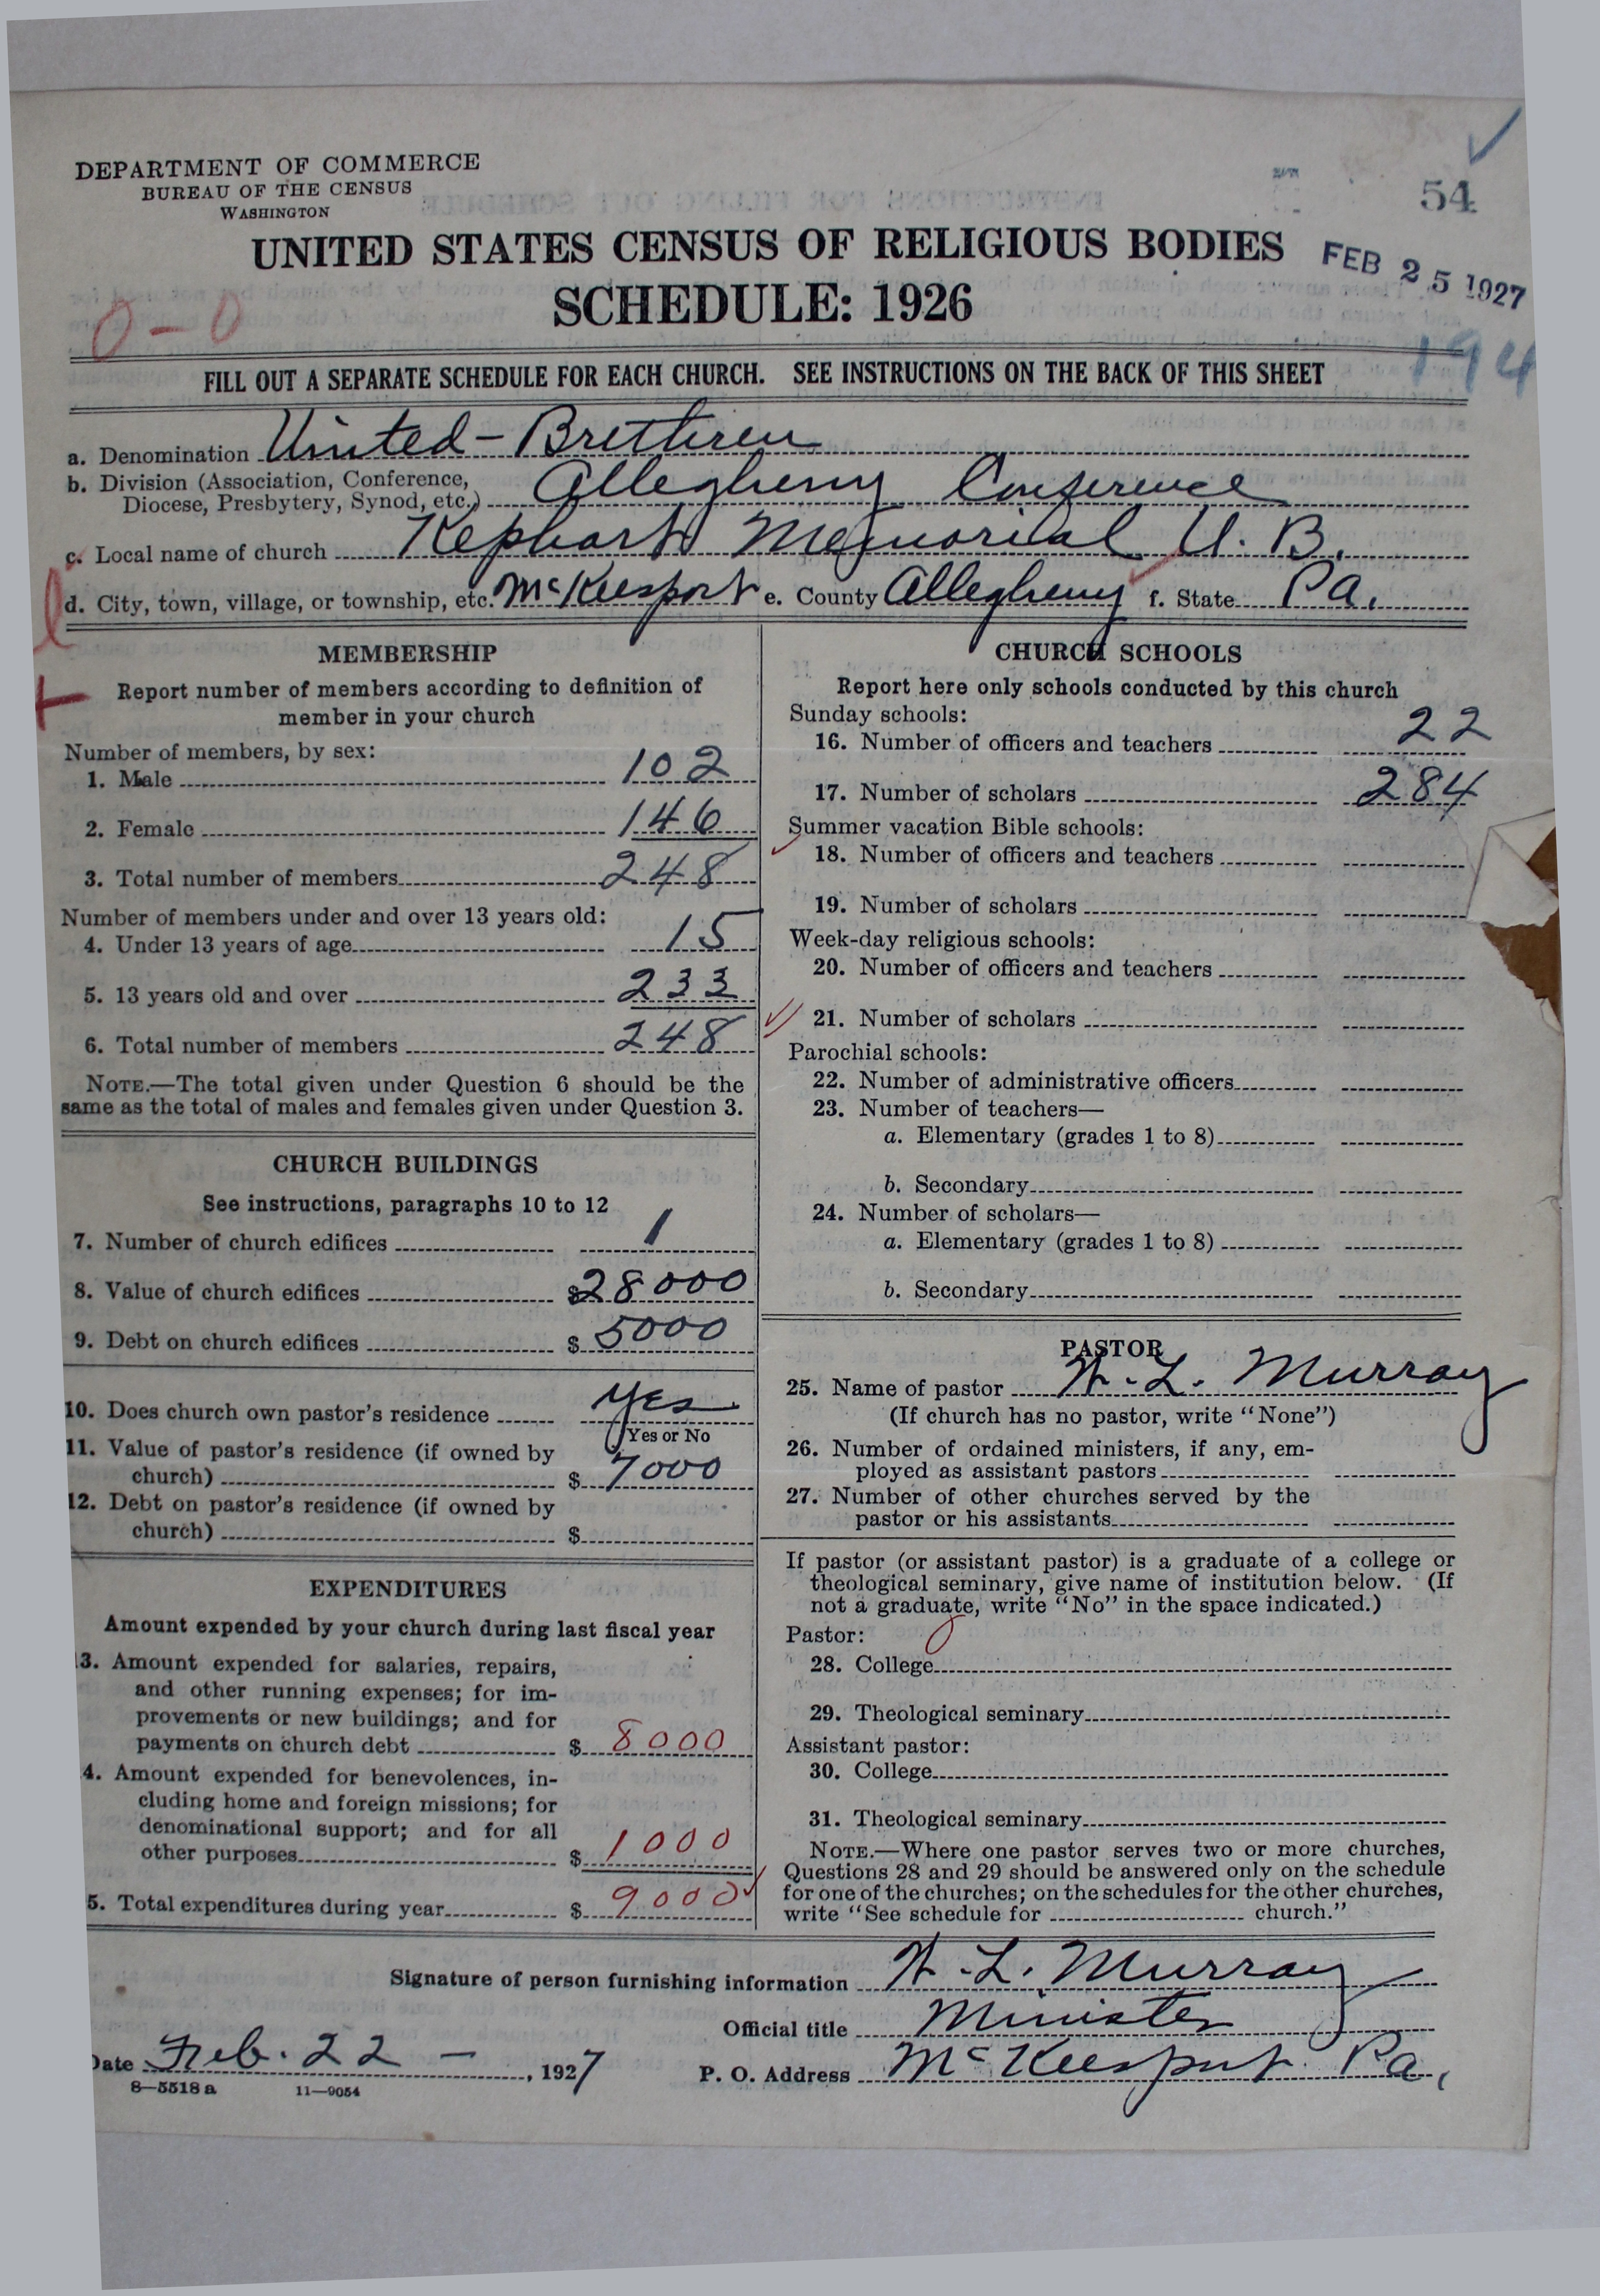 DEPARTMENT OF COMMERCE
BUREAU OF THE CENSUS
WASHINGTON
54
UNITED STATES CENSUS OF RELIGIOUS BODIES
FEB 25 1927
SCHEDULE: 1926
0-0
194
FILL OUT A SEPARATE SCHEDULE FOR EACH CHURCH. SEE INSTRUCTIONS ON THE BACK OF THIS SHEET
a. Denomination United-Brethren
b. Division (Association, Conference,
Diocese, Presbytery, Synod, etc.) Allegheny Conference
c. Local name of church Kephart Memorial U. B.
d. City, town, village, or township, etc. McKeesport e. County Allegheny f. State Pa.
MEMBERSHIP
Report number of members according to definition of
member in your church
Number of members, by sex:
1. Male 102
2. Female 146
3. Total number of members 248
Number of members under and over 13 years old:
4. Under 13 years of age 15
5. 13 years old and over 233
6. Total number of members 248
NOTE.—The total given under Question 6 should be the
same as the total of males and females given under Question 3.
CHURCH BUILDINGS
See instructions, paragraphs 10 to 12
7. Number of church edifices 1
8. Value of church edifices $28000
9. Debt on church edifices $5000
10. Does church own pastor's residence Yes
Yes or No
11. Value of pastor's residence (if owned by
church) $7000
12. Debt on pastor's residence (if owned by
church) $
EXPENDITURES
Amount expended by your church during last fiscal year
13. Amount expended for salaries, repairs,
and other running expenses; for im-
provements or new buildings; and for
payments on church debt $8000
4. Amount expended for benevolences, in-
cluding home and foreign missions; for
denominational support; and for all
other purposes $1000
5. Total expenditures during year $9000
CHURCH SCHOOLS
Report here only schools conducted by this church
Sunday schools:
16. Number of officers and teachers 22
17. Number of scholars 284
Summer vacation Bible schools:
18. Number of officers and teachers
19. Number of scholars
Week-day religious schools:
20. Number of officers and teachers
21. Number of scholars
Parochial schools:
22. Number of administrative officers
23. Number of teachers—
a. Elementary (grades 1 to 8)
b. Secondary
24. Number of scholars—
a. Elementary (grades 1 to 8)
b. Secondary
PASTOR
25. Name of pastor W. L. Murray
(If church has no pastor, write "None")
26. Number of ordained ministers, if any, em-
ployed as assistant pastors
27. Number of other churches served by the
pastor or his assistants
If pastor (or assistant pastor) is a graduate of a college or
theological seminary, give name of institution below. (If
not a graduate, write "No" in the space indicated.)
Pastor:
28. College
29. Theological seminary
Assistant pastor:
30. College
31. Theological seminary
NOTE.—Where one pastor serves two or more churches,
Questions 28 and 29 should be answered only on the schedule
for one of the churches; on the schedules for the other churches,
write "See schedule for church."
Signature of person furnishing information W. L. Murray
Official title Minister
Date Feb. 22 - , 1927
P. O. Address McKeesport Pa.
8—5518 a 11—9054